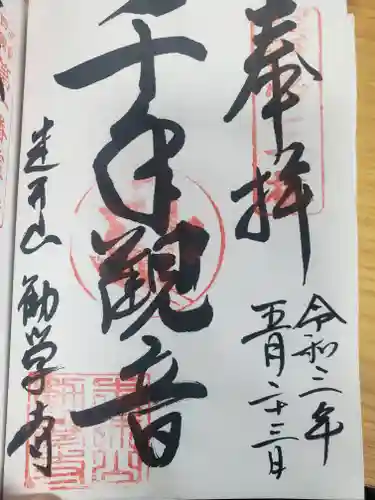 奉拝
令和三年
五月二十三日
千手観音
蓮下山 勧学寺